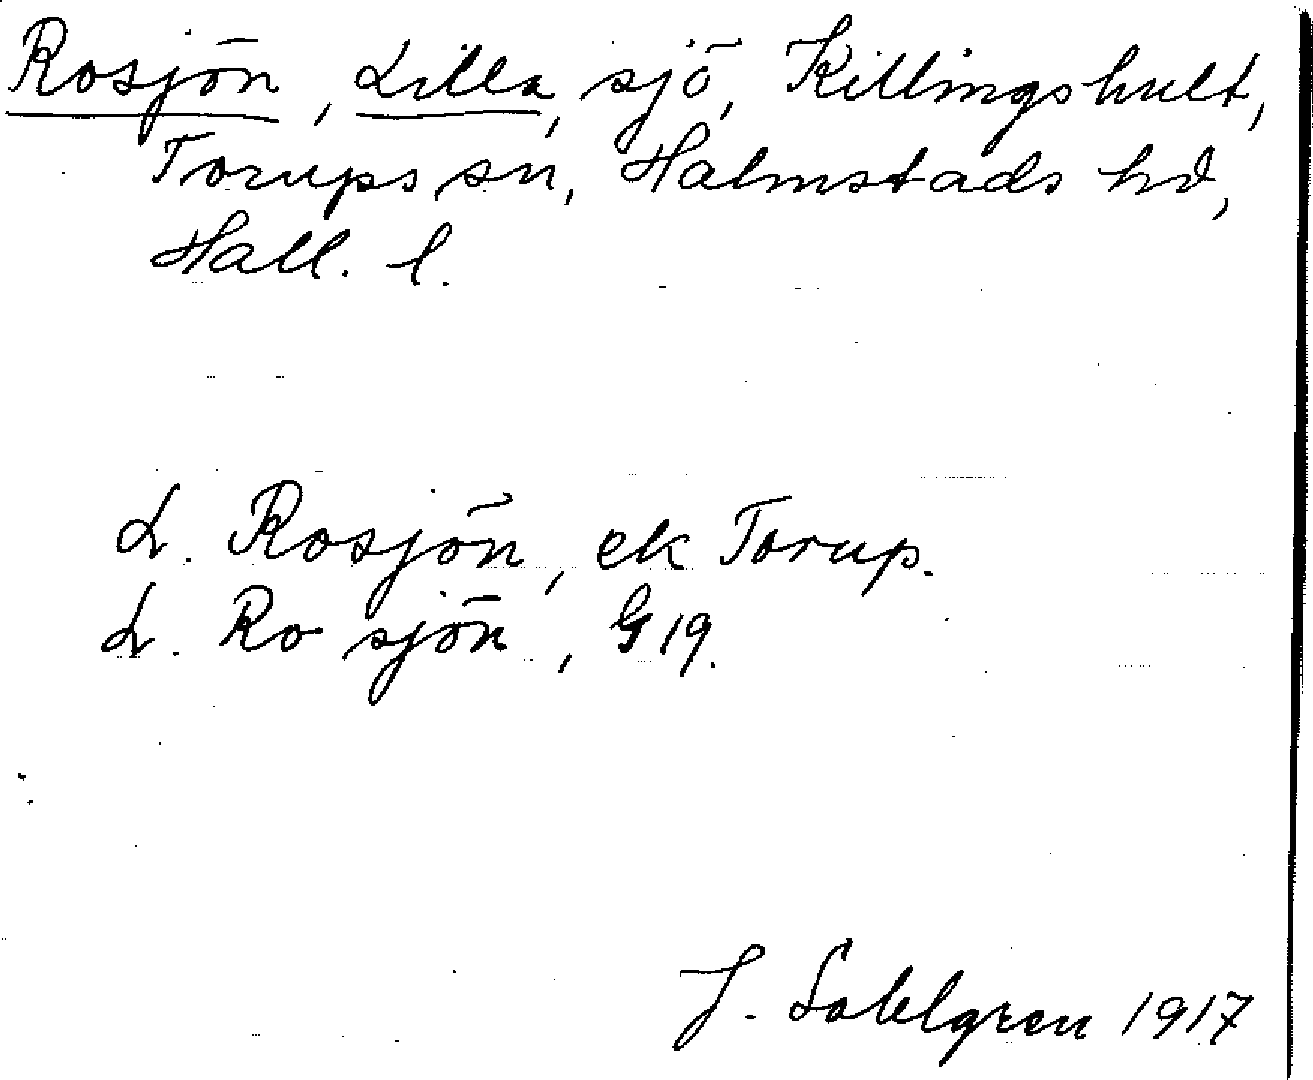 Rosjön, Lilla, sjö, Killingshult,
Torups sn, Halmstads hd,
Hall. l.
L. Rosjön, ek Torup.
L. Ro sjön, G 19.
J. Sahlgren 1917